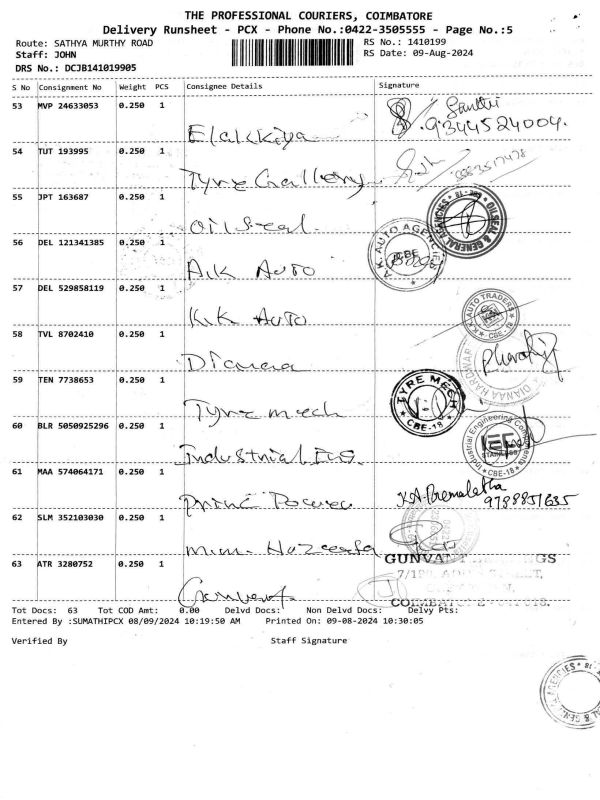 THE PROFESSIONAL COURIERS, COIMBATORE
Delivery Runsheet - PCX - Phone No.:0422-3505555 - Page No.:5
Route: SATHYA MURTHY ROAD RS No.: 1410199
Staff: JOHN RS Date: 09-Aug-2024
DRS No.: DCJB141019905
S No Consignment No Weight PCS Consignee Details Signature
53 MVP 24633053 0.250 1
Elakkiya Santhi 9344524004.
54 TUT 193995 0.250 1
Tyre Gallery
55 JPT 163687 0.250 1
Oil Seal OILSEAL & GENERAL AGENCIES
56 DEL 121341385 0.250 1
A.K Auto A.K AUTO AGENCIES CBE
57 DEL 529858119 0.250 1
K.K Auto K.K AUTO TRADERS CBE-18
58 TVL 8702410 0.250 1
Dianaa
59 TEN 7738653 0.250 1
Tyre mech TYRE MECH CBE-18
60 BLR 5050925296 0.250 1
Industrial Industrial Engineering Components CBE-18
61 MAA 574064171 0.250 1
K.A. Premalatha
9788851635
62 SLM 352103030 0.250 1
63 ATR 3280752 0.250 1
GUNVANT
Tot Docs: 63 Tot COD Amt: 0.00 Delvd Docs: Non Delvd Docs: Delvy Pts:
Entered By :SUMATHIPCX 08/09/2024 10:19:50 AM Printed On: 09-08-2024 10:30:05
Verified By Staff Signature